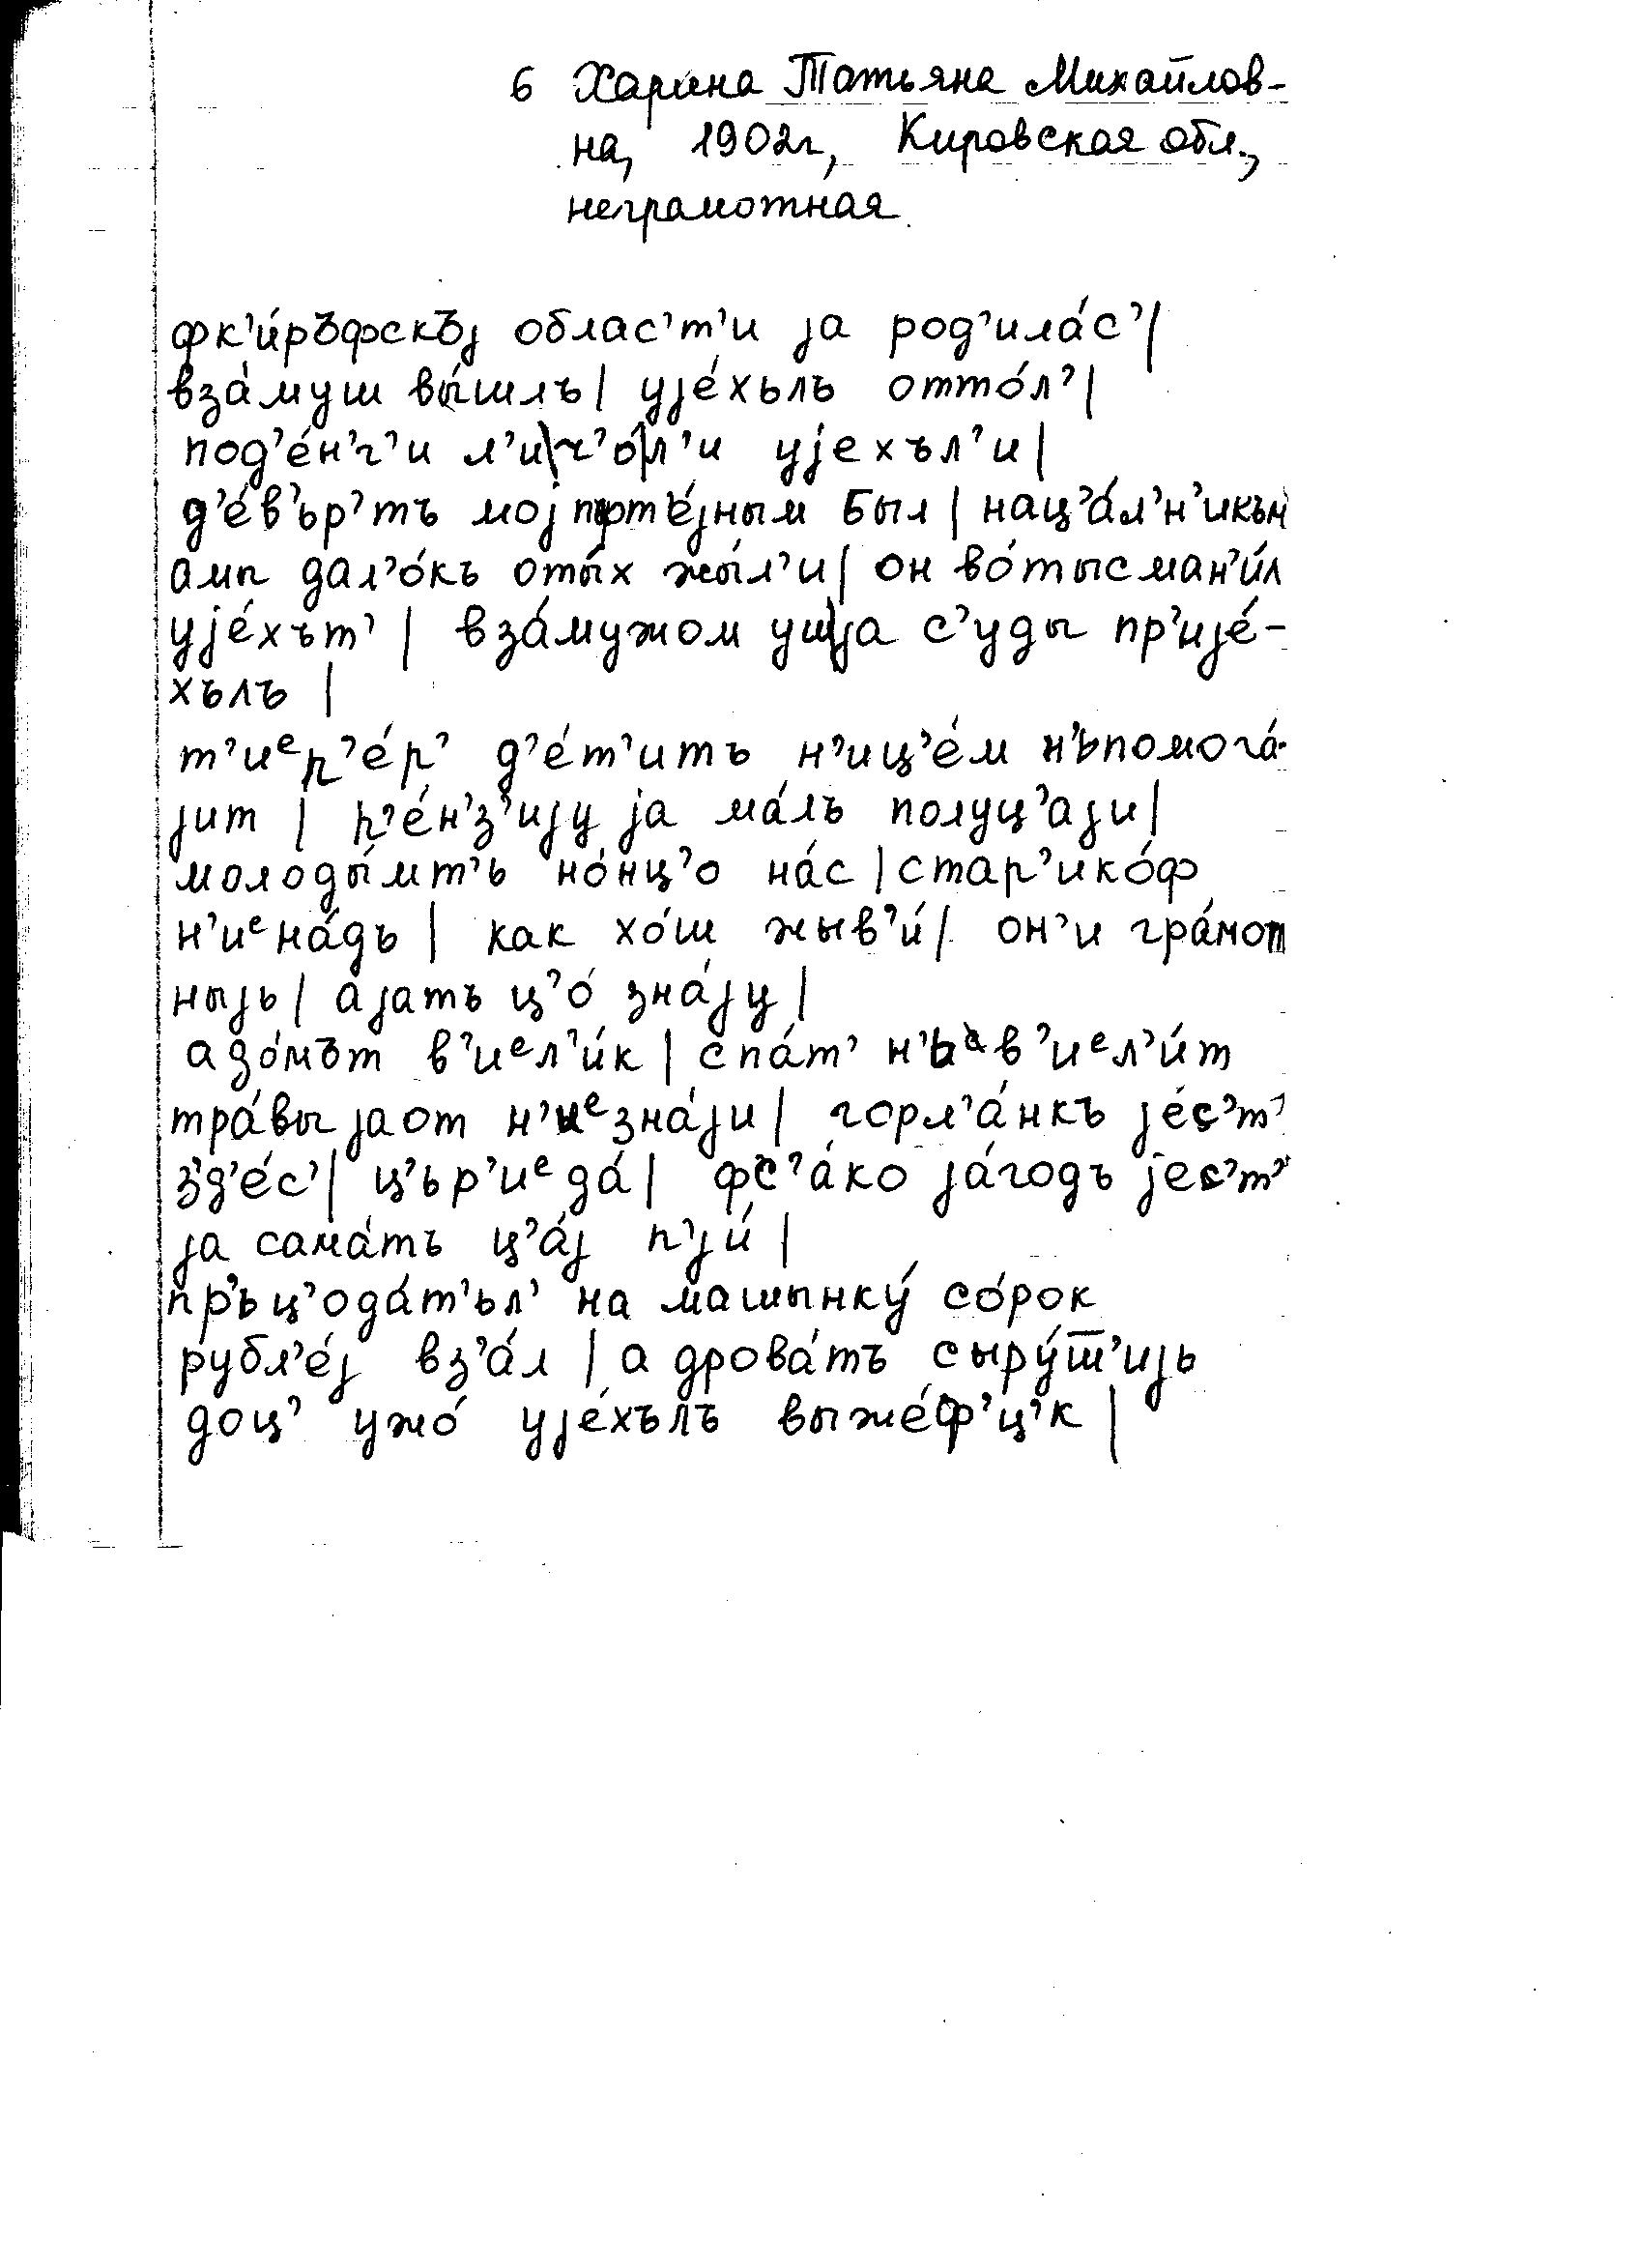 6 Харина Татьяна Михайлов-
на, 1902г, Кировская обл.,
неграмотная
фк'и́ръфскъј облас'т'и ја род'ила́с'|
вза́муш вы́шлъ| ује́хълъ отто́л'|
под'е́н'г'и л'и|ч'о́|л'и ујехъл'и|
д'е́в'ьр'тъ мој пъртъ́јным был | нац'а́л'н'икъм
амы дал'о́къ оты́х жы́л'и| он во́тысман'и́л
ује́хът' | вза́мужом уш|ја с'уды пр'ије́-
хълъ |
т'иᵉп'е́р' д'е́т'итъ н'иц'е́м н'ьпомога́-
јит | п'е́н'з'ију ја ма́лъ полуц'аји|
молоды́мт'ь но́нц'о на́с |стар'ико́ф
н'иᵉна́дъ | как хо́ш жыв'и́| он'и гра́мот
ныјь| ајатъ ц'о́ зна́ју|
адо́мът в'иᵉл'и́к | спа́т' н'ьв'иᵉл'и́т
тра́вы јаот н'иᵉзна́ји| горл'а́нкъ је́с'т'
з'д'е́с'| ц'ьр'иᵉда́| фс'а́ко ја́годъ јес'т'
ја сама́тъ ц'а́ј п'ји́ |
пр'ьц'ода́т'ьл' на машынку́ со́рок
рубл'е́ј вз'а́л | а дрова́тъ сыру́ш̅'ијь
доц' ужо́ ује́хълъ выже́ф'ц'к |